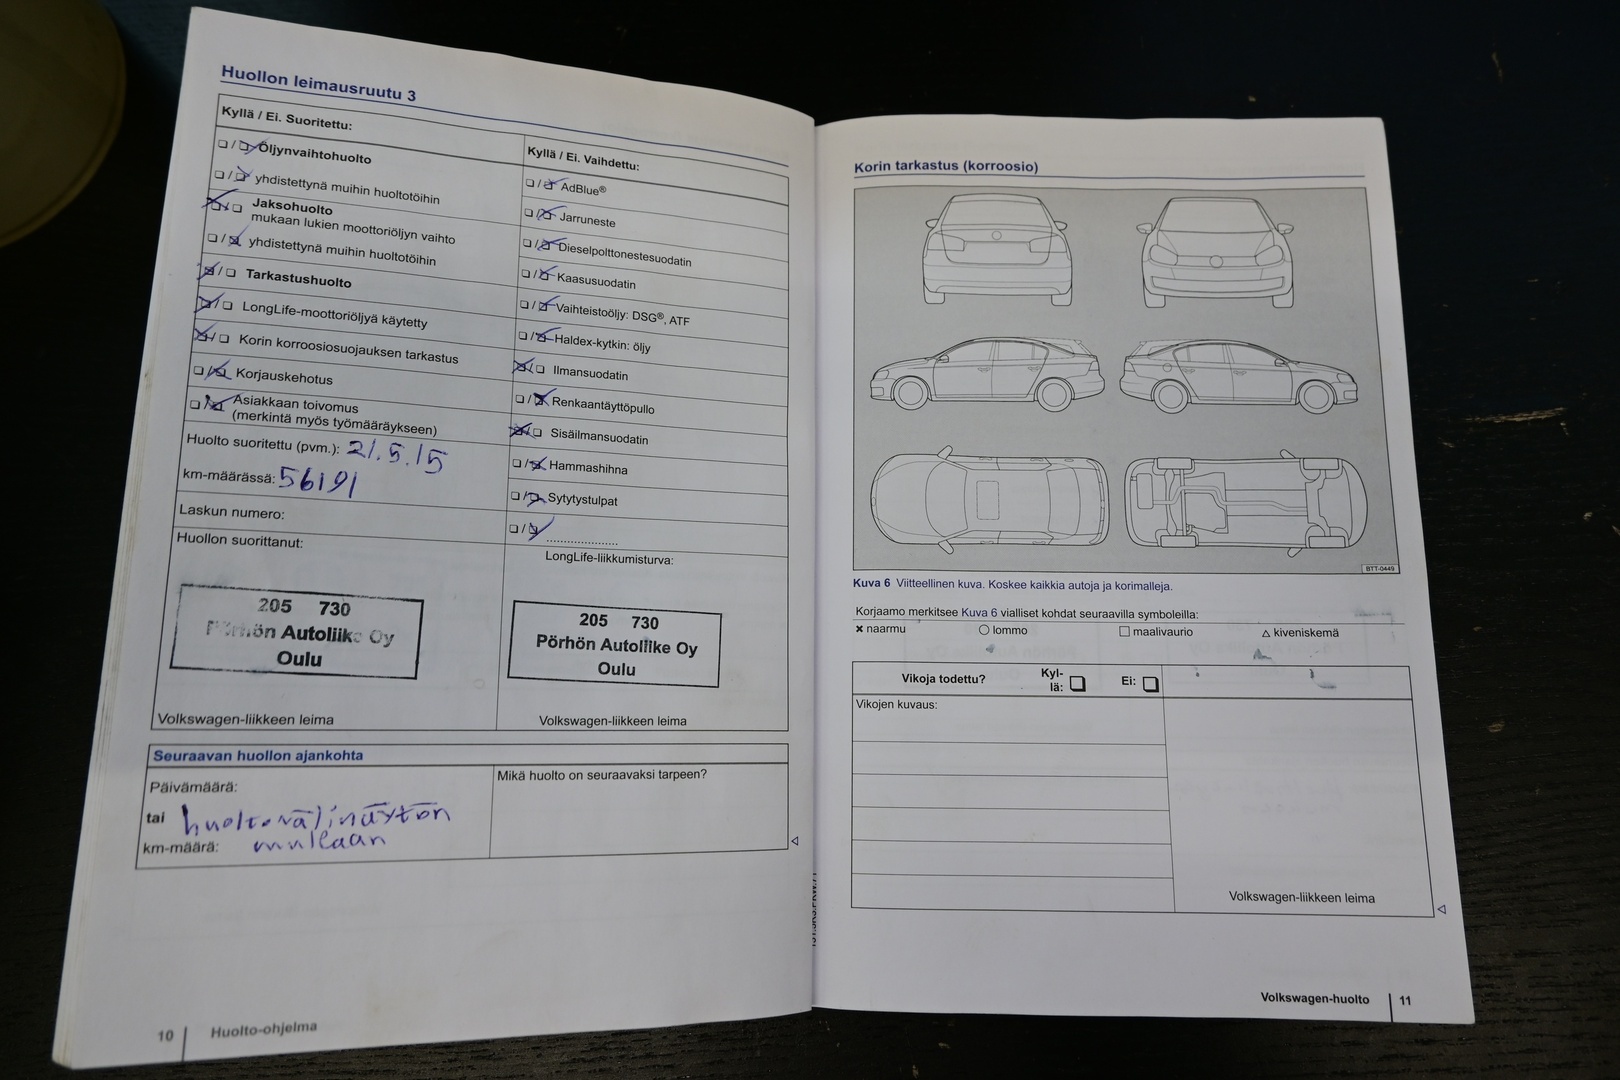 Huollon leimausruutu 3
Kyllä / Ei. Suoritettu:
Öljynvaihtohuolto
yhdistettynä muihin huoltotöihin
Jaksohuolto
mukaan lukien moottoriöljyn vaihto
yhdistettynä muihin huoltotöihin
Tarkastushuolto
LongLife-moottoriöljyä käytetty
Korin korroosiosuojauksen tarkastus
Korjauskehotus
Asiakkaan toivomus
(merkintä myös työmääräykseen)
Huolto suoritettu (pvm.): 21.5.15
km-määrässä: 56191
Laskun numero:
Huollon suorittanut:
205 730
Pörhön Autoliike Oy
Oulu
Volkswagen-liikkeen leima
Kyllä / Ei. Vaihdettu:
AdBlue®
Jarruneste
Dieselpolttonestesuodatin
Kaasusuodatin
Vaihteistoöljy: DSG®, ATF
Haldex-kytkin: öljy
Ilmansuodatin
Renkaantäyttöpullo
Sisäilmansuodatin
Hammashihna
Sytytystulpat
....................
LongLife-liikkumisturva:
205 730
Pörhön Autoliike Oy
Oulu
Volkswagen-liikkeen leima
Seuraavan huollon ajankohta
Päivämäärä:
tai huoltovälinäytön
km-määrä: mukaan
Mikä huolto on seuraavaksi tarpeen?
10 Huolto-ohjelma
Korin tarkastus (korroosio)
BTT-0449
Kuva 6 Viitteellinen kuva. Koskee kaikkia autoja ja korimalleja.
Korjaamo merkitsee Kuva 6 vialliset kohdat seuraavilla symboleilla:
naarmu lommo maalivaurio kiveniskemä
Vikoja todettu? Kyl-
lä: Ei:
Vikojen kuvaus:
Volkswagen-liikkeen leima
Volkswagen-huolto 11